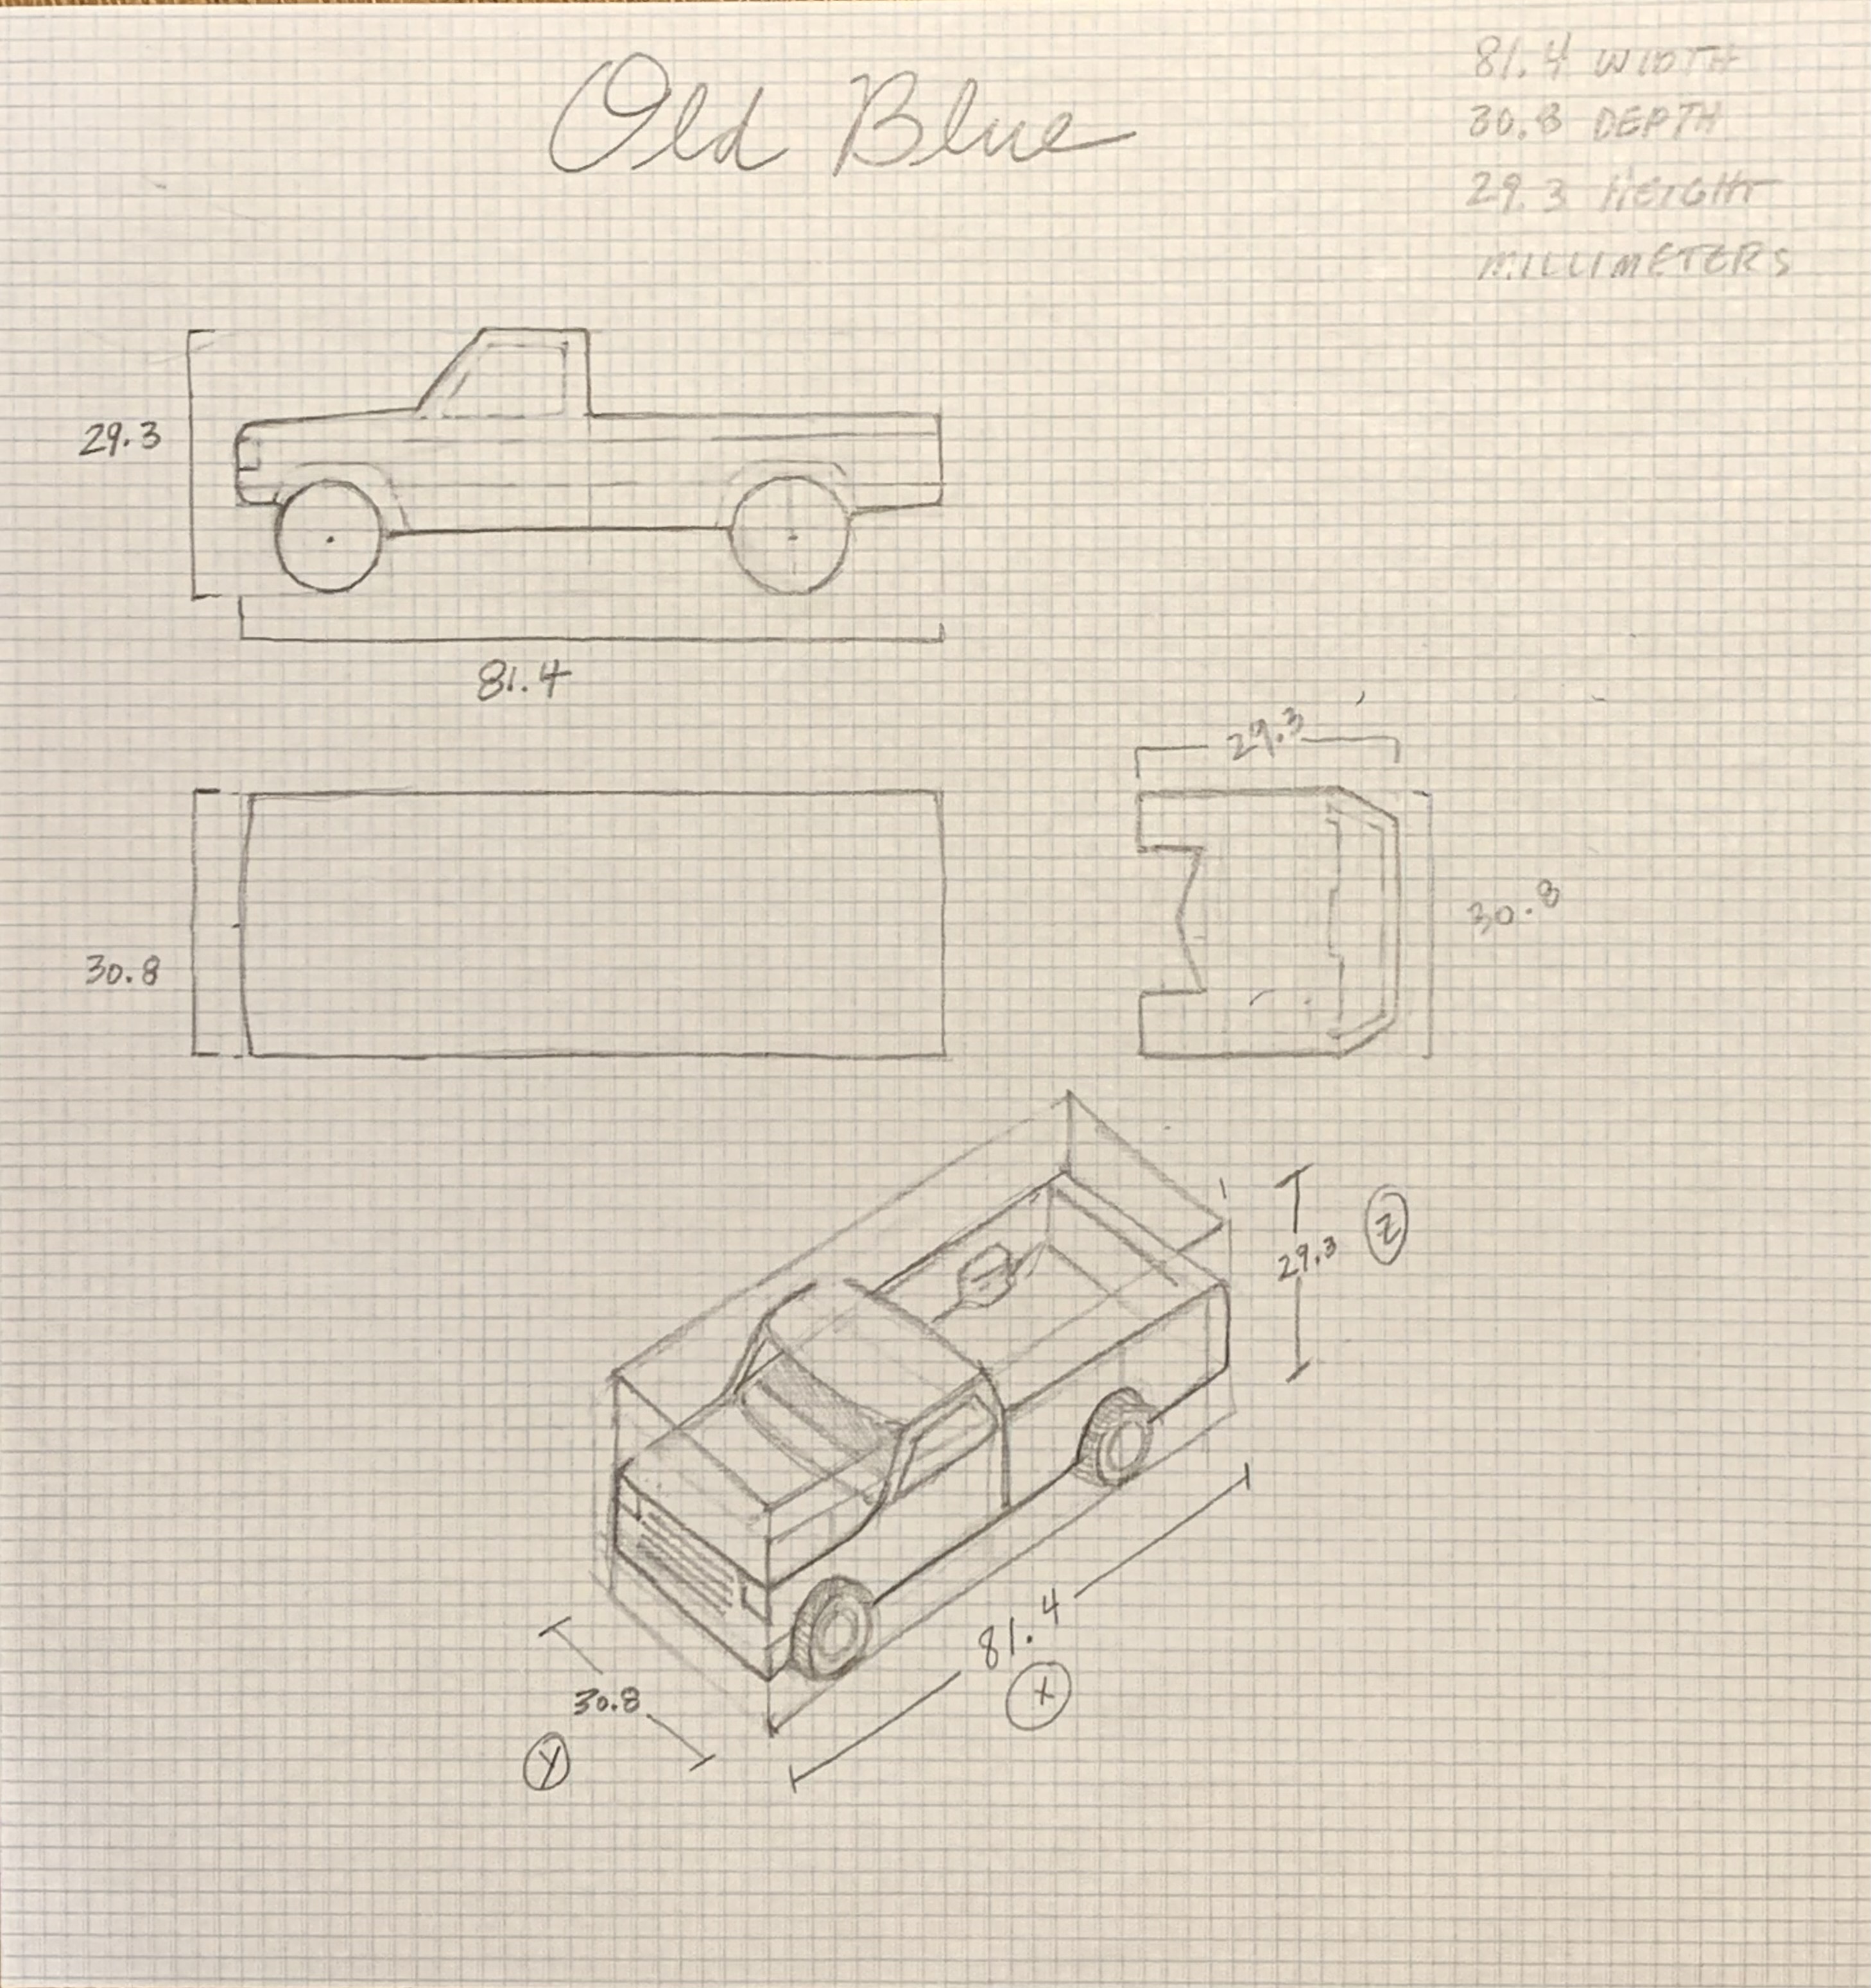 Old Blue
81.4 WIDTH
30.8 DEPTH
29.3 HEIGHT
MILLIMETERS
29.3
81.4
29.3
30.8
30.8
29.3
Z
81.4
X
30.8
Y